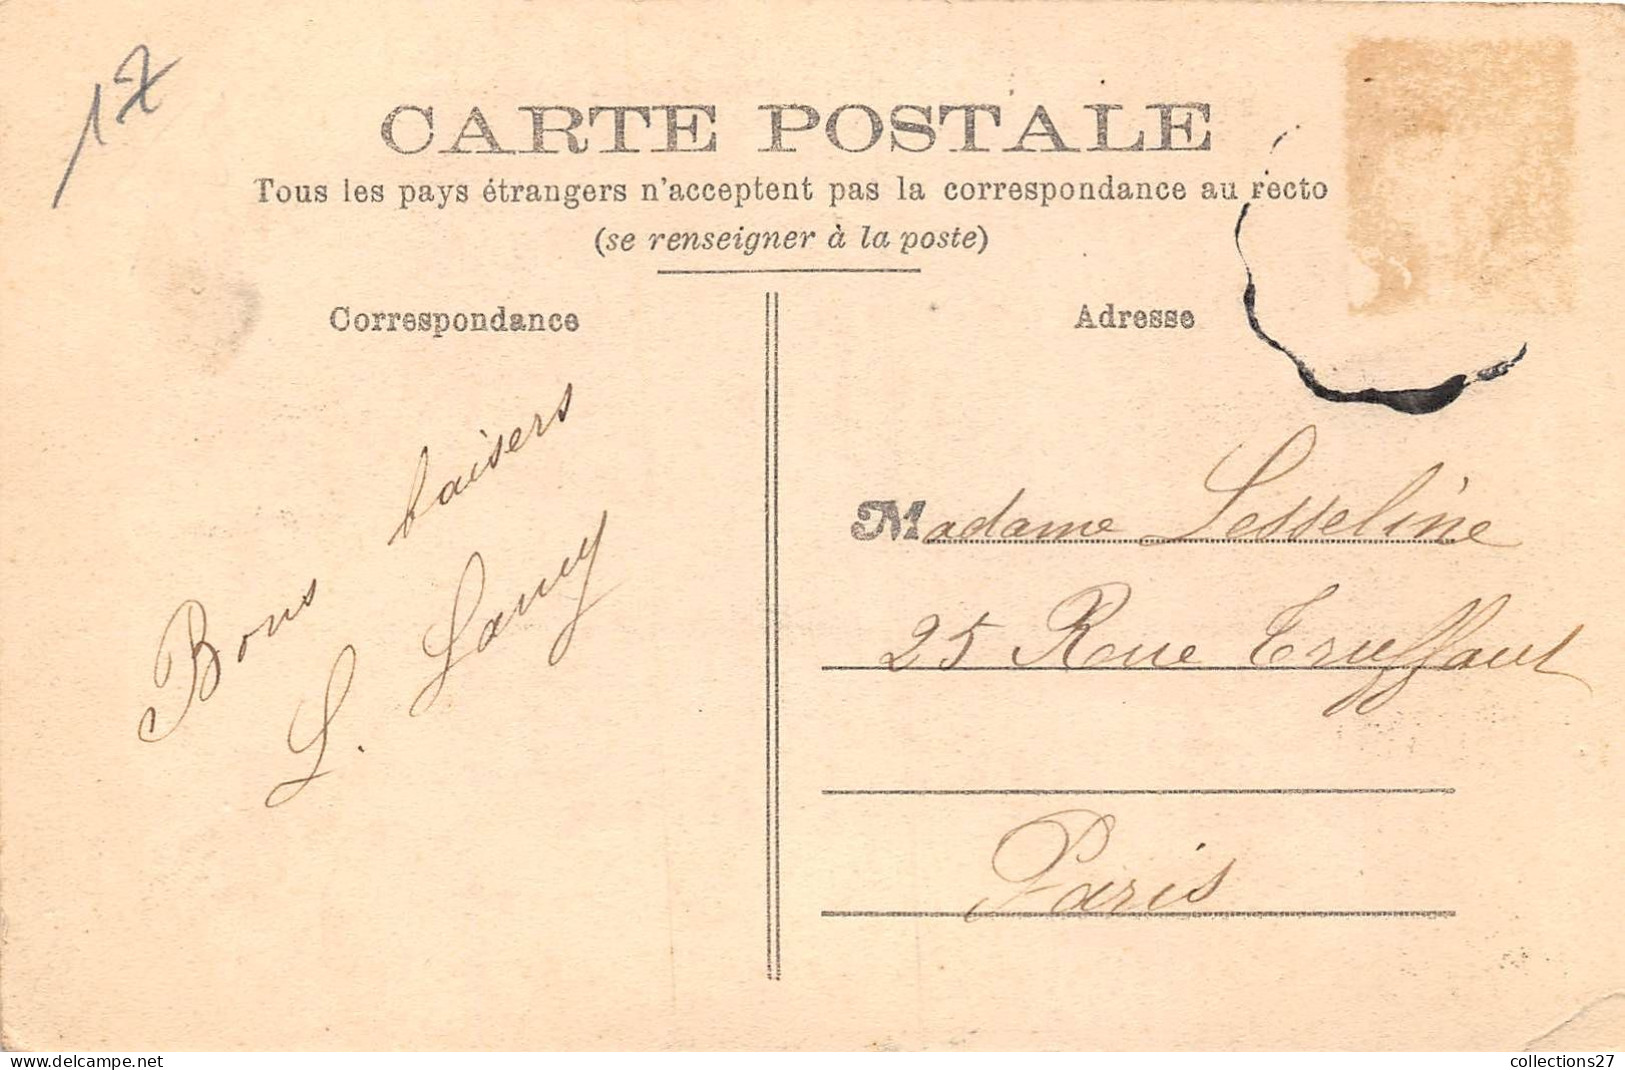 17
CARTE POSTALE
Tous les pays étrangers n'acceptent pas la correspondance au recto
(se renseigner à la poste)
Correspondance
Adresse
Bons baisers
L. Lamy
Madame Lesseline
25 Rue Truffaut
Paris
www.delcampe.net
collections27